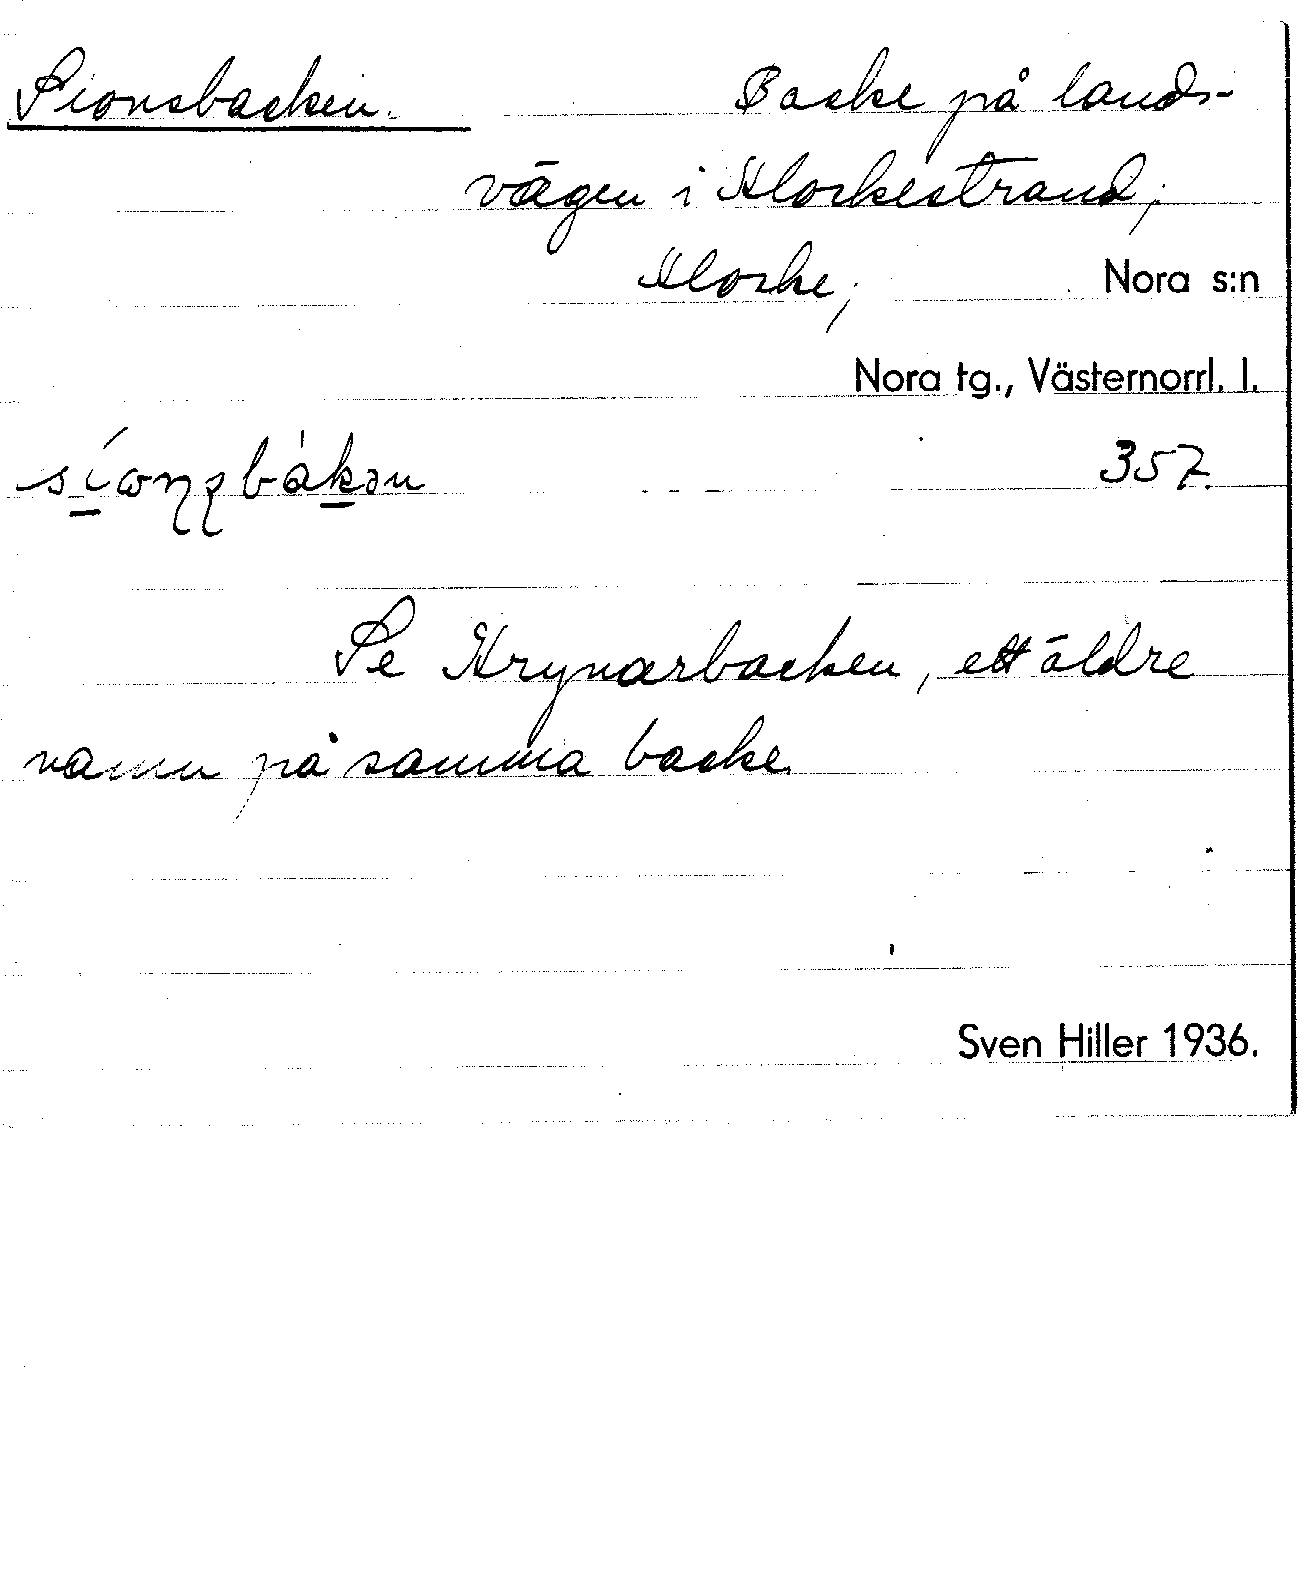 Sionsbacken. Backe på lands-
vägen i Klockestrand,
Klocke, Nora s:n
Nora tg., Västernorrl. l.
357.
Se Krynarbacken, ett äldre
namn på samma backe.
Sven Hiller 1936.